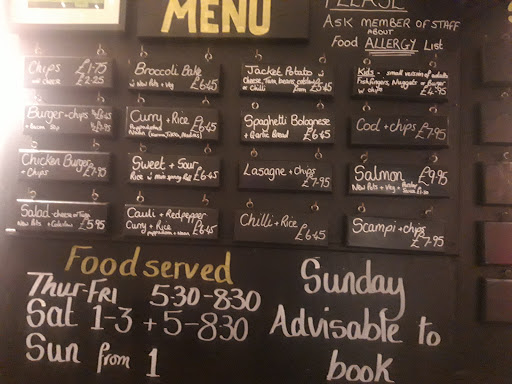 MENU
PLEASE
ASK MEMBER OF STAFF
ABOUT
Food ALLERGY List
Chips £1.75
cheese £2.25
Broccoli Bake
New Pots + Veg £6.45
Jacket Potato
Cheese, Tuna, beans,
or Chilli from £5.45
Kids - small version of adults
Fishfingers, Nuggets or Burger
w chips £4.95
Burger + chips
+ Bacon 50p
Curry + Rice
£6.45
Spaghetti Bolognese
+ Garlic Bread £6.45
Cod + chips £7.95
Chicken Burger
+ Chips £7.95
Sweet + Sour
Rice + mini spring Roll £6.45
Lasagne + chips
£7.95
Salmon £9.95
New Pots + Veg +
Salad - cheese or Tuna
New Pots + Coleslaw £5.95
Cauli + Red pepper
Curry + Rice
+ Naan £6.45
Chilli + Rice
£6.45
Scampi + chips
£7.95
Food served
Thur-Fri 5.30-8.30
Sat 1-3 + 5-8.30
Sun from 1
Sunday
Advisable to
book